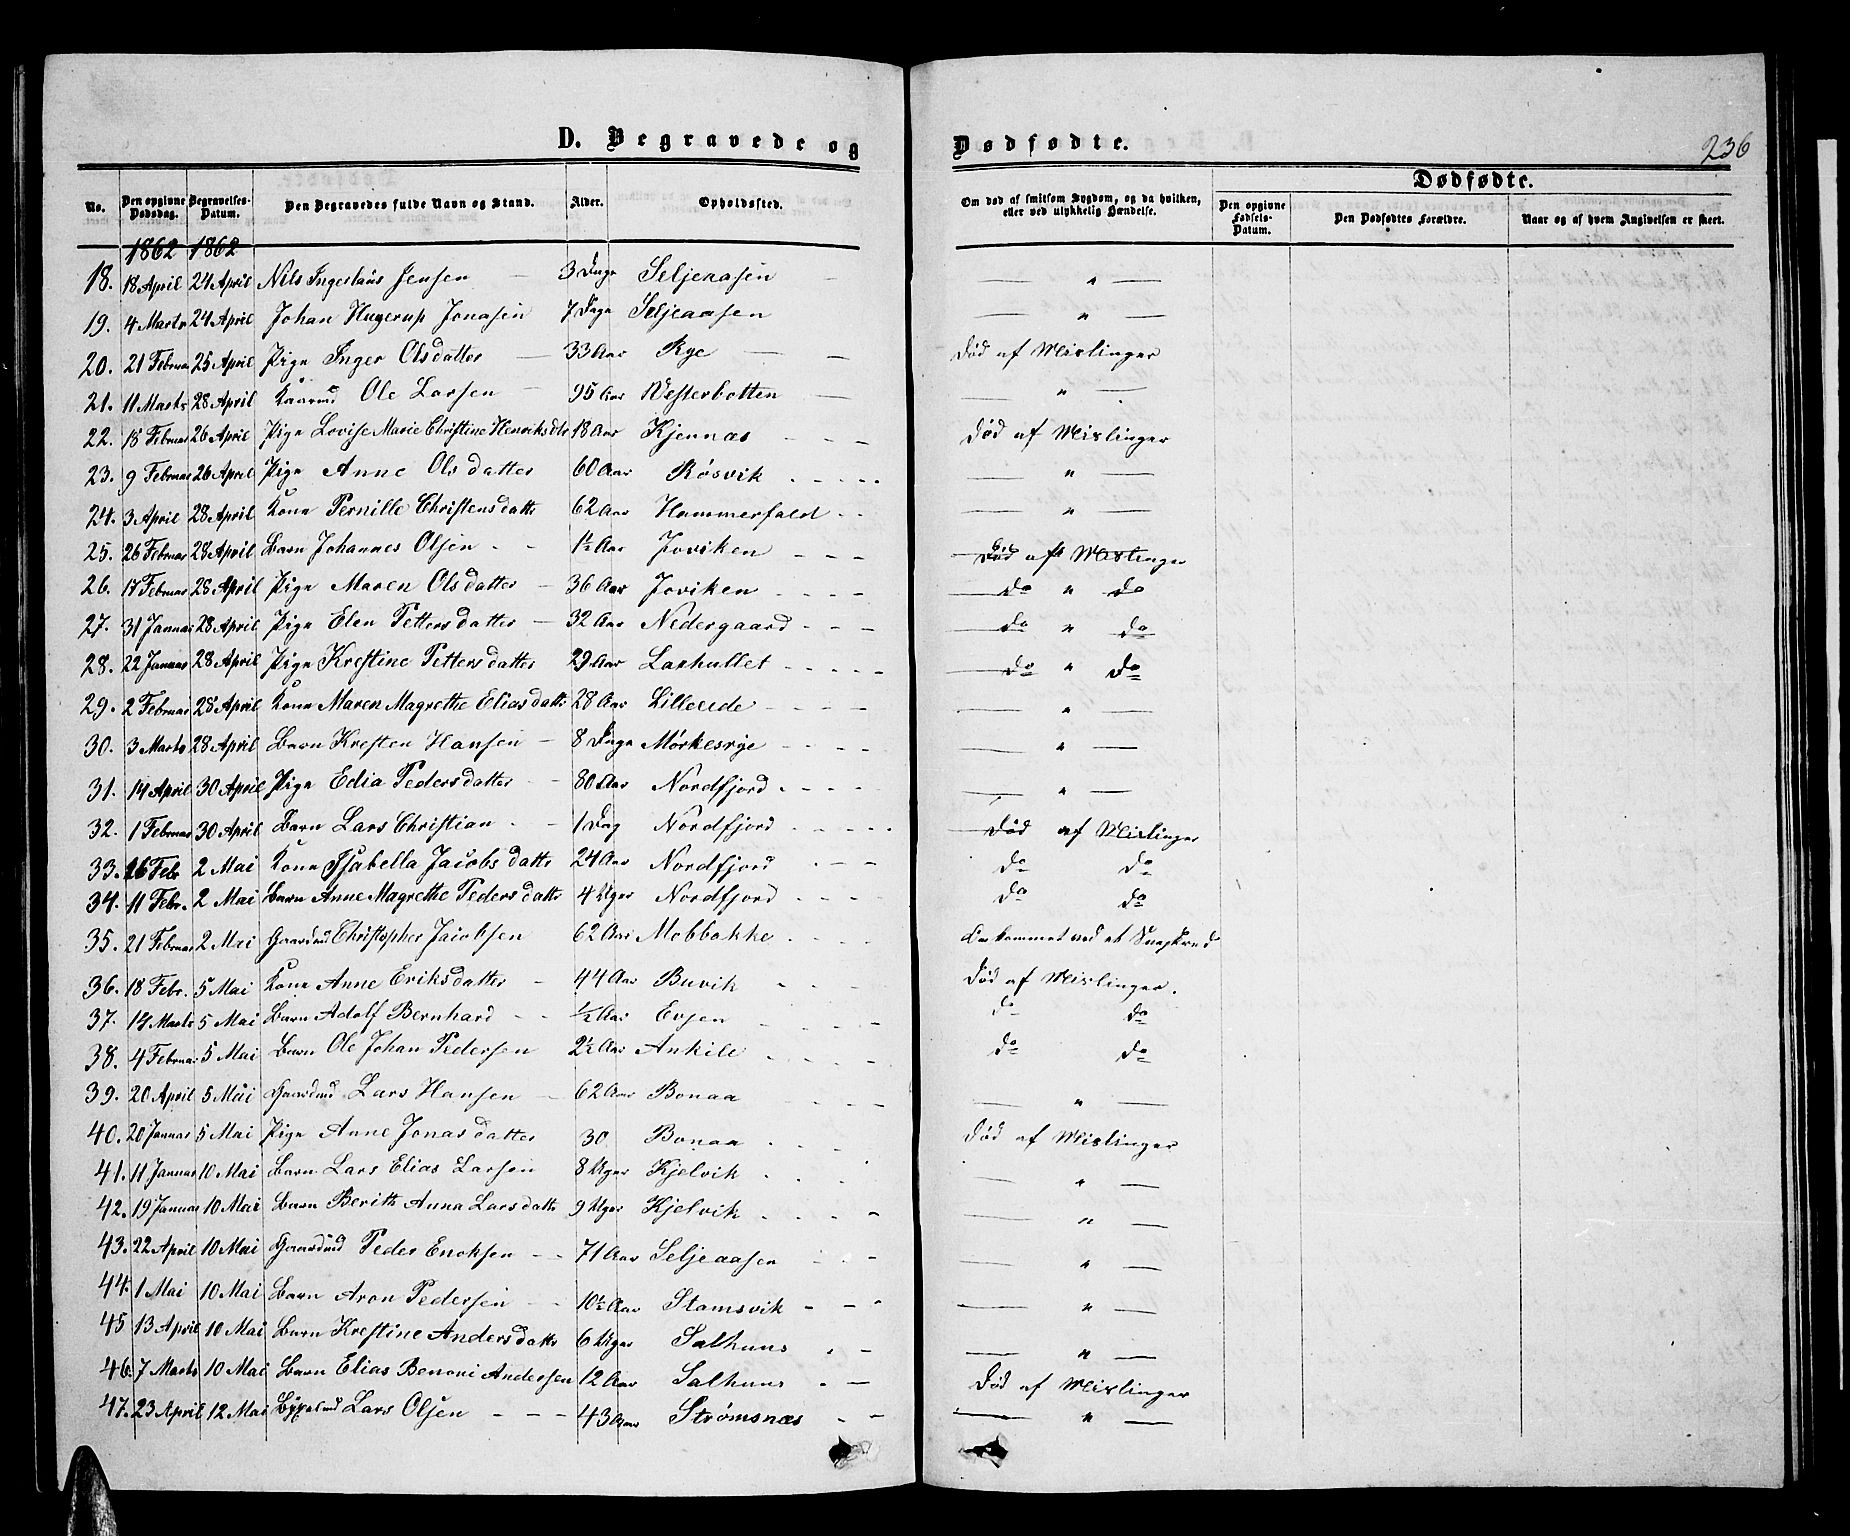 D. Begravede og Dødfødte.
236
No. Den opgivne Dødsdag. Begravelses-Datum. Den Begravedes fulde Navn og Stand. Alder. Opholdssted. Om død af smitsom Sygdom, og da hvilken, eller ved ulykkelig Hændelse. Dødfødte.
Den opgivne Fødsels-Datum. Den Dødfødtes Forældre. Naar og af hvem Angivelsen er skeet.
1862 1862
18. 18 April 24 April Nils Ingebrigt Jensen — 3 Dage Seljeaasen — — " —
19. 4 Marts 24 April Johan Hugerup Jonasen 7 Dage Seljeaasen — " —
20. 21 Februar 25 April Pige Inger Olsdatter — 33 Aar Rye — — Død af Meslinger
21. 11 Marts 28 April Kaarmd Ole Larsen — 95 Aar Westerbotten — — " —
22. 18 Februar 26 April Pige Lovise Marie Christine Henriksdtr 18 Aar Kjennæs - - — Død af Meslinger
23. 9 Februar 26 April Pige Anne Olsdatter 60 Aar Røsvik - - - - — " —
24. 3 April 28 April Kone Pernille Christensdattr 62 Aar Hammerfald - - — " —
25. 26 Februar 28 April Barn Johannes Olsen - - 1½ Aar Joviken - - - Død af Meslinger
26. 17 Februar 28 April Pige Maren Olsdatter — 36 Aar Joviken - - - - do " do
27. 31 Januar 28 April Pige Elen Pettersdatter — 32 Aar Nedergaard - - - do " do
28. 22 Januar 28 April Pige Krestine Pettersdatter 29 Aar Laxhullet - - - - do " do
29. 2 Februar 28 April Kone Maren Magrethe Eliasdattr 28 Aar Lilleeide - - - - — " —
30. 3 Marts 28 April Barn Kresten Hansen — 8 Dage Mørkesvye - - - - — " —
31. 14 April 30 April Pige Edia Pedersdatter - - 80 Aar Nordfjord - - - - — " —
32. 1 Februar 30 April Barn Lars Christian - - 1 Dag Nordfjord - - - - - Død af Meslinger
33. 26 Febr 2 Mai Kone Isabella Jacobsdattr 24 Aar Nordfjord - - - do do
34. 11 Febr. 2 Mai Barn Anne Magrethe Pedersdattr 4 Uger Nordfjord - - - - do do
35. 21 Februar 2 Mai Gaardmd Christopher Jacobsen 62 Aar Mebbakke - - - - Omkommet ved et Sneskred
36. 18 Febr. 5 Mai Kone Anne Eriksdatter - 44 Aar Buvik - - - Død af Meslinger.
37. 14 Marts 5 Mai Barn Adolf Bernhard - - ½ Aar Evjen - - - - do do
38. 4 Februar 5 Mai Barn Ole Johan Pedersen 2½ Aar Ankile - - - - do do
39. 20 April 5 Mai Gaardmd Lars Hansen — 62 Aar Bonaa - - - — " —
40. 20 Januar 5 Mai Pige Anne Jonasdatter 30 Bonaa - - - Død af Meslinger
41. 11 Januar 10 Mai Barn Lars Elias Larsen 8 Uger Kjelvik - - - — " —
42. 19 Januar 10 Mai Barn Berith Anna Larsdattr 9 Uger Kjelvik - - - - — " —
43. 22 April 10 Mai Gaardmd Peder Enoksen - - 71 Aar Seljeaasen - - - — " —
44. 1 Mai 10 Mai Barn Aron Pedersen - - 10½ Aar Stamsvik - - - — " —
45 13 April 10 Mai Barn Krestine Andersdattr 6 Uger Salhuus - - — " —
46. 7 Marts 10 Mai Barn Elias Benoni Andersen 12 Aar Salhuus - — Død af Meslinger
47. 23 April 12 Mai Lars Olsen - - - 43 Aar Strømsnæs - - — " —